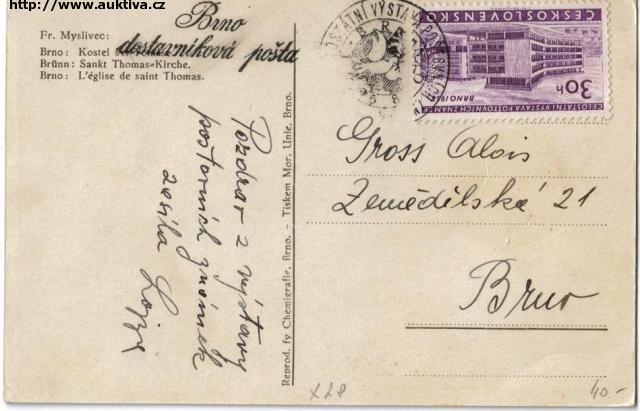 http://www.auktiva.cz
Brno
Fr. Myslivec:
dostavníková pošta
Brno: Kostel
Brünn: Sankt Thomas=Kirche.
Brno: L'église de saint Thomas.
Pozdrav z výstavy
poštovních známek
zasílá Lojzi
Reprod. fy Chemigrafie, Brno. - Tiskem Mor. Unie, Brno.
ČESKOSLOVENSKO
30h
BRNO 1958
CELOSTÁTNÍ VÝSTAVA POŠTOVNÍCH ZNÁMEK
Gross Alois
Zemědělská 21
Brno
x28
40.-